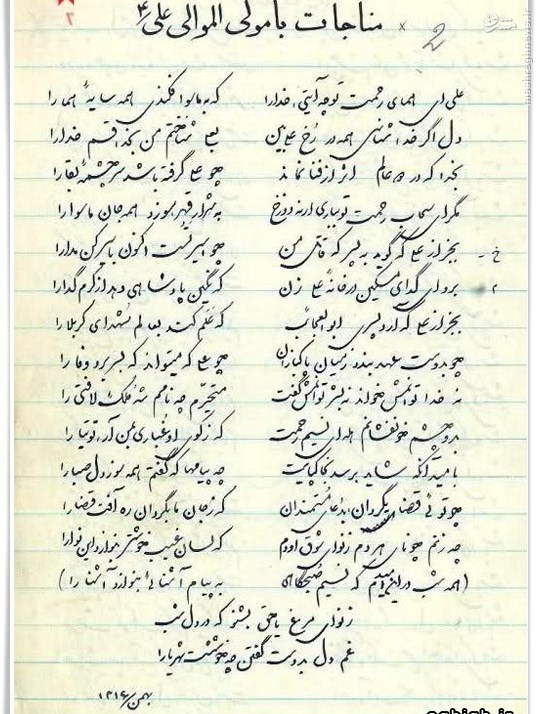 مناجات با مولی الموالی علی ع
علی ای همای رحمت تو چه آیتی خدا را که به ماسوا فکندی همه سایهٔ هما را
دل اگر خداشناسی همه در رخ علی بین بعلی شناختم من بخدا قسم خدا را
بخدا که در دو عالم اثر از فنا نماند چو علی گرفته باشد سر چشمهٔ بقا را
مگر ای سحاب رحمت تو بباری ارنه دوزخ به شرار قهر سوزد همه جان ماسوا را
بجز از علی که گوید به پسر که قاتل من چو اسیر تست اکنون باسیر کن مدارا
برو ای گدای مسکین در خانهٔ علی زن که نگین پادشاهی دهد از کرم گدا را
بجز از علی که آرد پسری ابوالعجائب که علم کند بعالم شهدای کربلا را
چو بدوست عهد بندد ز میان پاکبازان چو علی که میتواند که بسر برد وفا را
نه خدا توانمش خواند نه بشر توانمش گفت متحیرم چه نامم شه ملک لافتی را
بدو چشم خونفشانم هله ای نسیم رحمت که ز کوی او غباری بمن آر توتیا را
بامید آنکه شاید برسد بخاک پایت چه پیامها که گفتم همه سوز دل صبا را
چو توئی قضا بگردان بدعای مستمندان که ز جان ما بگردان ره آفت قضا را
چه زنم چو نای هر دم ز نوای شوق او دم که لسان غیب خوشتر بنوازد این نوا را
(همه شب در این امیدم که نسیم صبحگاهی به پیام آشنائی بنوازد آشنا را)
ز نوای مرغ یا حق بشنو که در دل شب
غم دل بدوست گفتن چه خوشست شهریارا
بهمن/۱۳۱۴